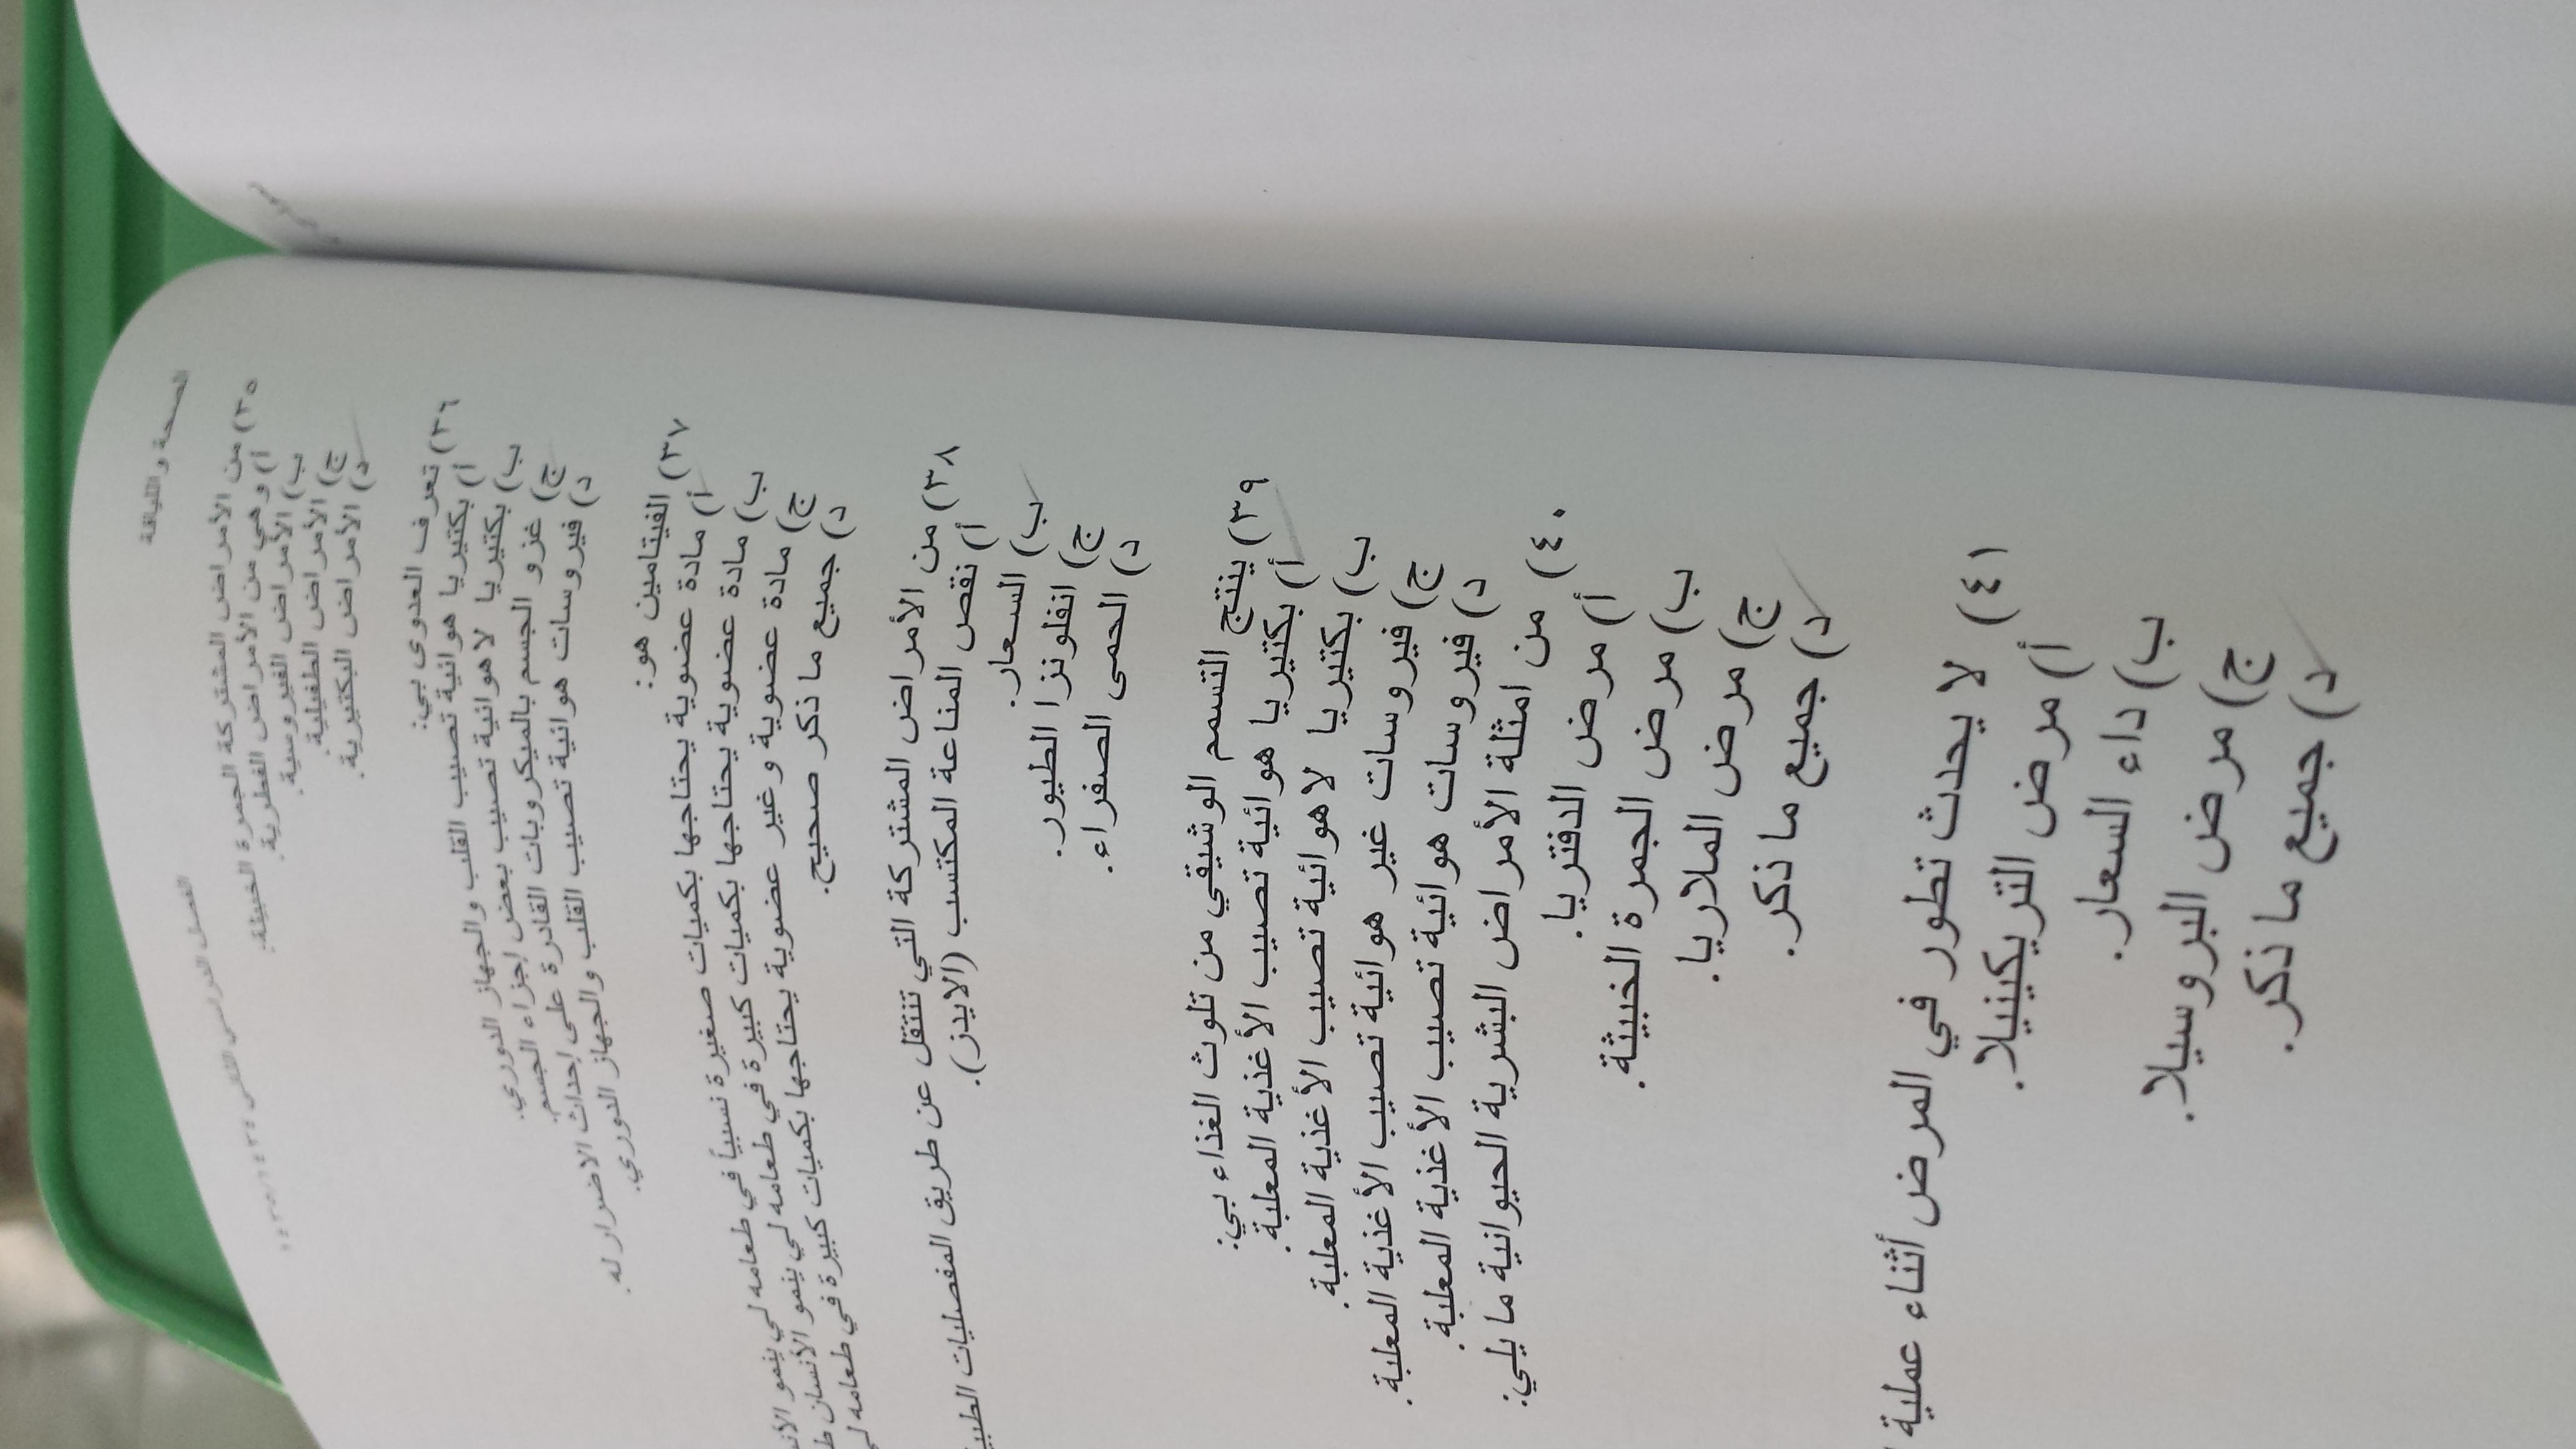 الصحة واللياقة
الفصل الدراسي الثاني ١٤٣٥/١٤٣٤
٣٥) من الأمراض المشتركة الجمرة الخبيثة:
أ) وهي من الأمراض الفطرية.
ب) الأمراض الفيروسية.
ج) الأمراض الطفيلية.
د) الأمراض البكتيرية.
٣٦) تعرف العدوى بي:
أ) بكتيريا هوائية تصيب القلب والجهاز الدوري.
ب) بكتيريا لاهوائية تصيب بعض اجزاء الجسم.
ج) غزو الجسم بالميكروبات القادرة على إحداث الاضرار له.
د) فيروسات هوائية تصيب القلب والجهاز الدوري.
٣٧) الفيتامين هو:
أ) مادة عضوية يحتاجها بكميات صغيرة نسبياً في طعامه لي ينمو
ب) مادة عضوية يحتاجها بكميات كبيرة في طعامه لي ينمو الأنسان
ج) مادة عضوية وغير عضوية يحتاجها بكميات كبيرة في طعامه
د) جميع ما ذكر صحيح.
٣٨) من الأمراض المشتركة التي تنتقل عن طريق المفصليات
أ) نقص المناعة المكتسب (الايدز).
ب) السعار.
ج) انفلونزا الطيور.
د) الحمى الصفراء.
٣٩) ينتج التسمم الوشيقي من تلوث الغذاء بي:
أ) بكتيريا هوائية تصيب الأغذية المعلبة.
ب) بكتيريا لاهوائية تصيب الأغذية المعلبة.
ج) فيروسات غير هوائية تصيب الأغذية المعلبة.
د) فيروسات هوائية تصيب الأغذية المعلبة.
٤٠) من امثلة الأمراض البشرية الحيوانية ما يلي:
أ) مرض الدفتريا.
ب) مرض الجمرة الخبيثة.
ج) مرض الملاريا.
د) جميع ما ذكر.
٤١) لا يحدث تطور في المرض أثناء عملية
أ) مرض التريكينيلا.
ب) داء السعار.
ج) مرض البروسيلا.
د) جميع ما ذكر.